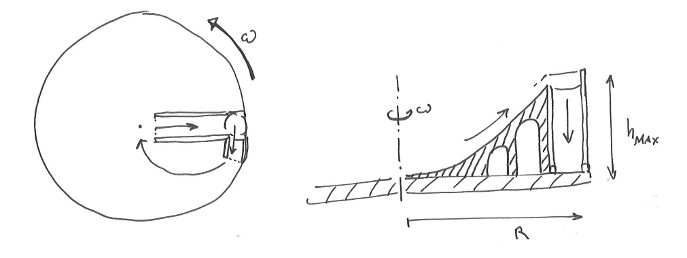 ω
ω
hMAX
R